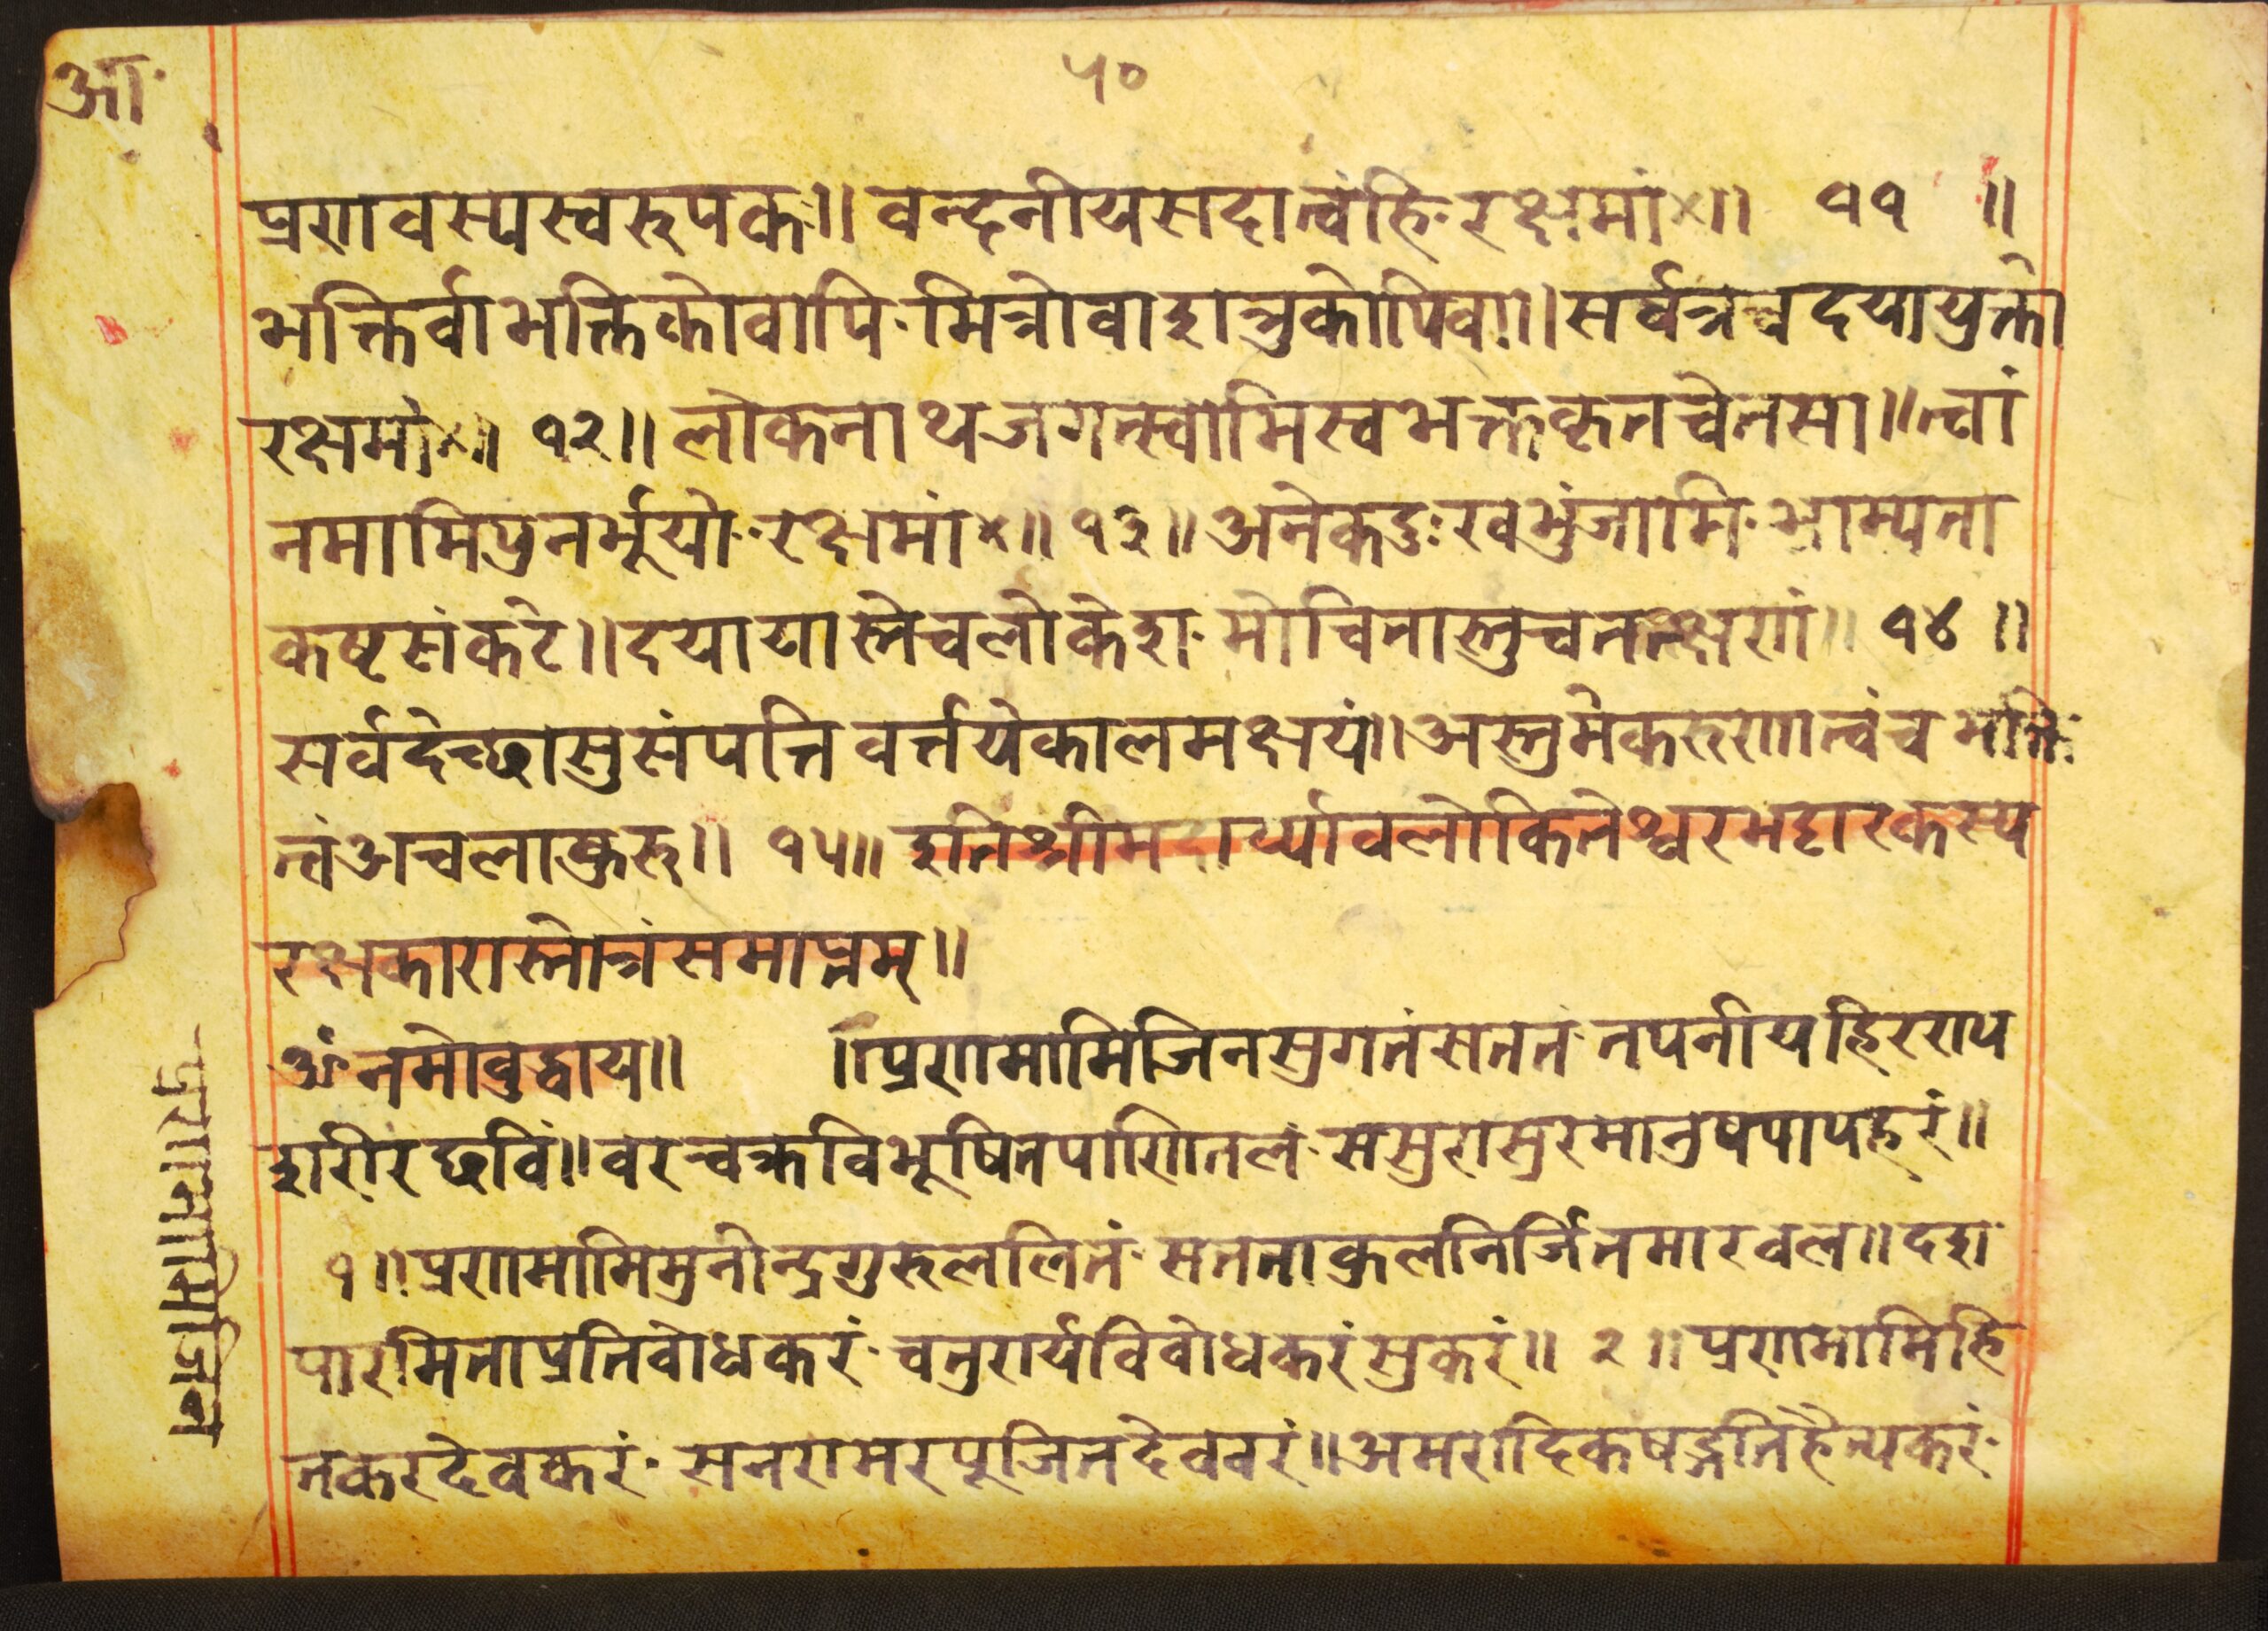 आ
५०
प्रणवस्यस्वरुपक॥ वन्दनीयसदात्वंहि·रक्षमां×॥ ११ ॥
भक्तिर्वाभक्तिकोवापि·मित्रोवाशत्रुकोपिवा॥सर्वत्रचदयायुक्तो
रक्षमां×॥ १२॥ लोकनाथजगत्स्वामिस्वभक्तकृतचेतसा॥त्वां
नमामिपुनर्भूयो·रक्षमां×॥ १३॥अनेकदुःखभुंजामि·भ्राम्यता
कष्टसंकटे॥दयायास्तेचलोकेश·मोचितास्तुचतत्क्षणां॥ १४ ॥
सर्वदेच्छासुसंपत्तिवर्त्तयेकालमक्षयं॥अस्तुमेकरुणात्वंचभक्तिं·
त्वंअचलाकुरु॥ १५॥ इतिश्रीमदार्य्यावलोकितेश्वरभट्टारकस्य
रक्षकारास्तोत्रंसमाप्तम्॥
ॐनमोवुद्धाय॥ ॥प्रणमामिजिनसुगतंसततं·तपनीयहिरराय
शरीरछविं॥वरचक्रविभूषितपाणितलं·ससुरासुरमानुषपापहरं॥
१॥प्रणमामिमुनीन्द्रगुरुललितं·सतताकुलनिर्जितमारवल॥दश
पारमिताप्रतिवोधकरं·चतुरार्यविवोधकरंसुकरं॥ २॥प्रणमामिहि
तकरदेवकरं·सनरामरपूजितदेववरं॥अमरादिकषड्गतिहैत्यकरं·
प्रणमामिजिन